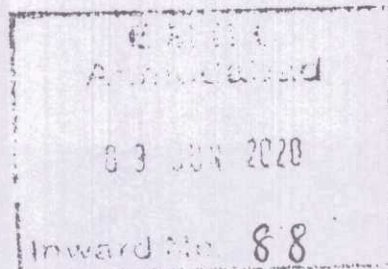 Ahmedabad
03 JUN 2020
Inward No. 88